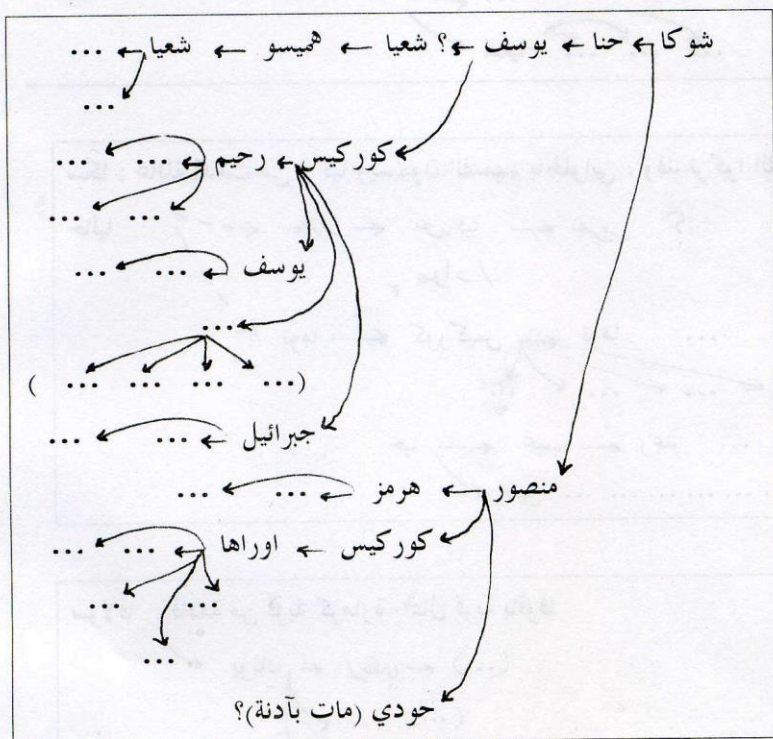 شوكا ← حنا ← يوسف ← ؟ شعيا ← هميسو ← شعيا ← ...
...
كوركيس ← رحيم ← ... ...
... ...
يوسف ← ... ...
...
(... ... ... ...)
جبرائيل ← ... ...
منصور ← هرمز ← ... ...
كوركيس ← اوراها ← ... ...
... ...
...
حودي (مات بآدنة)؟